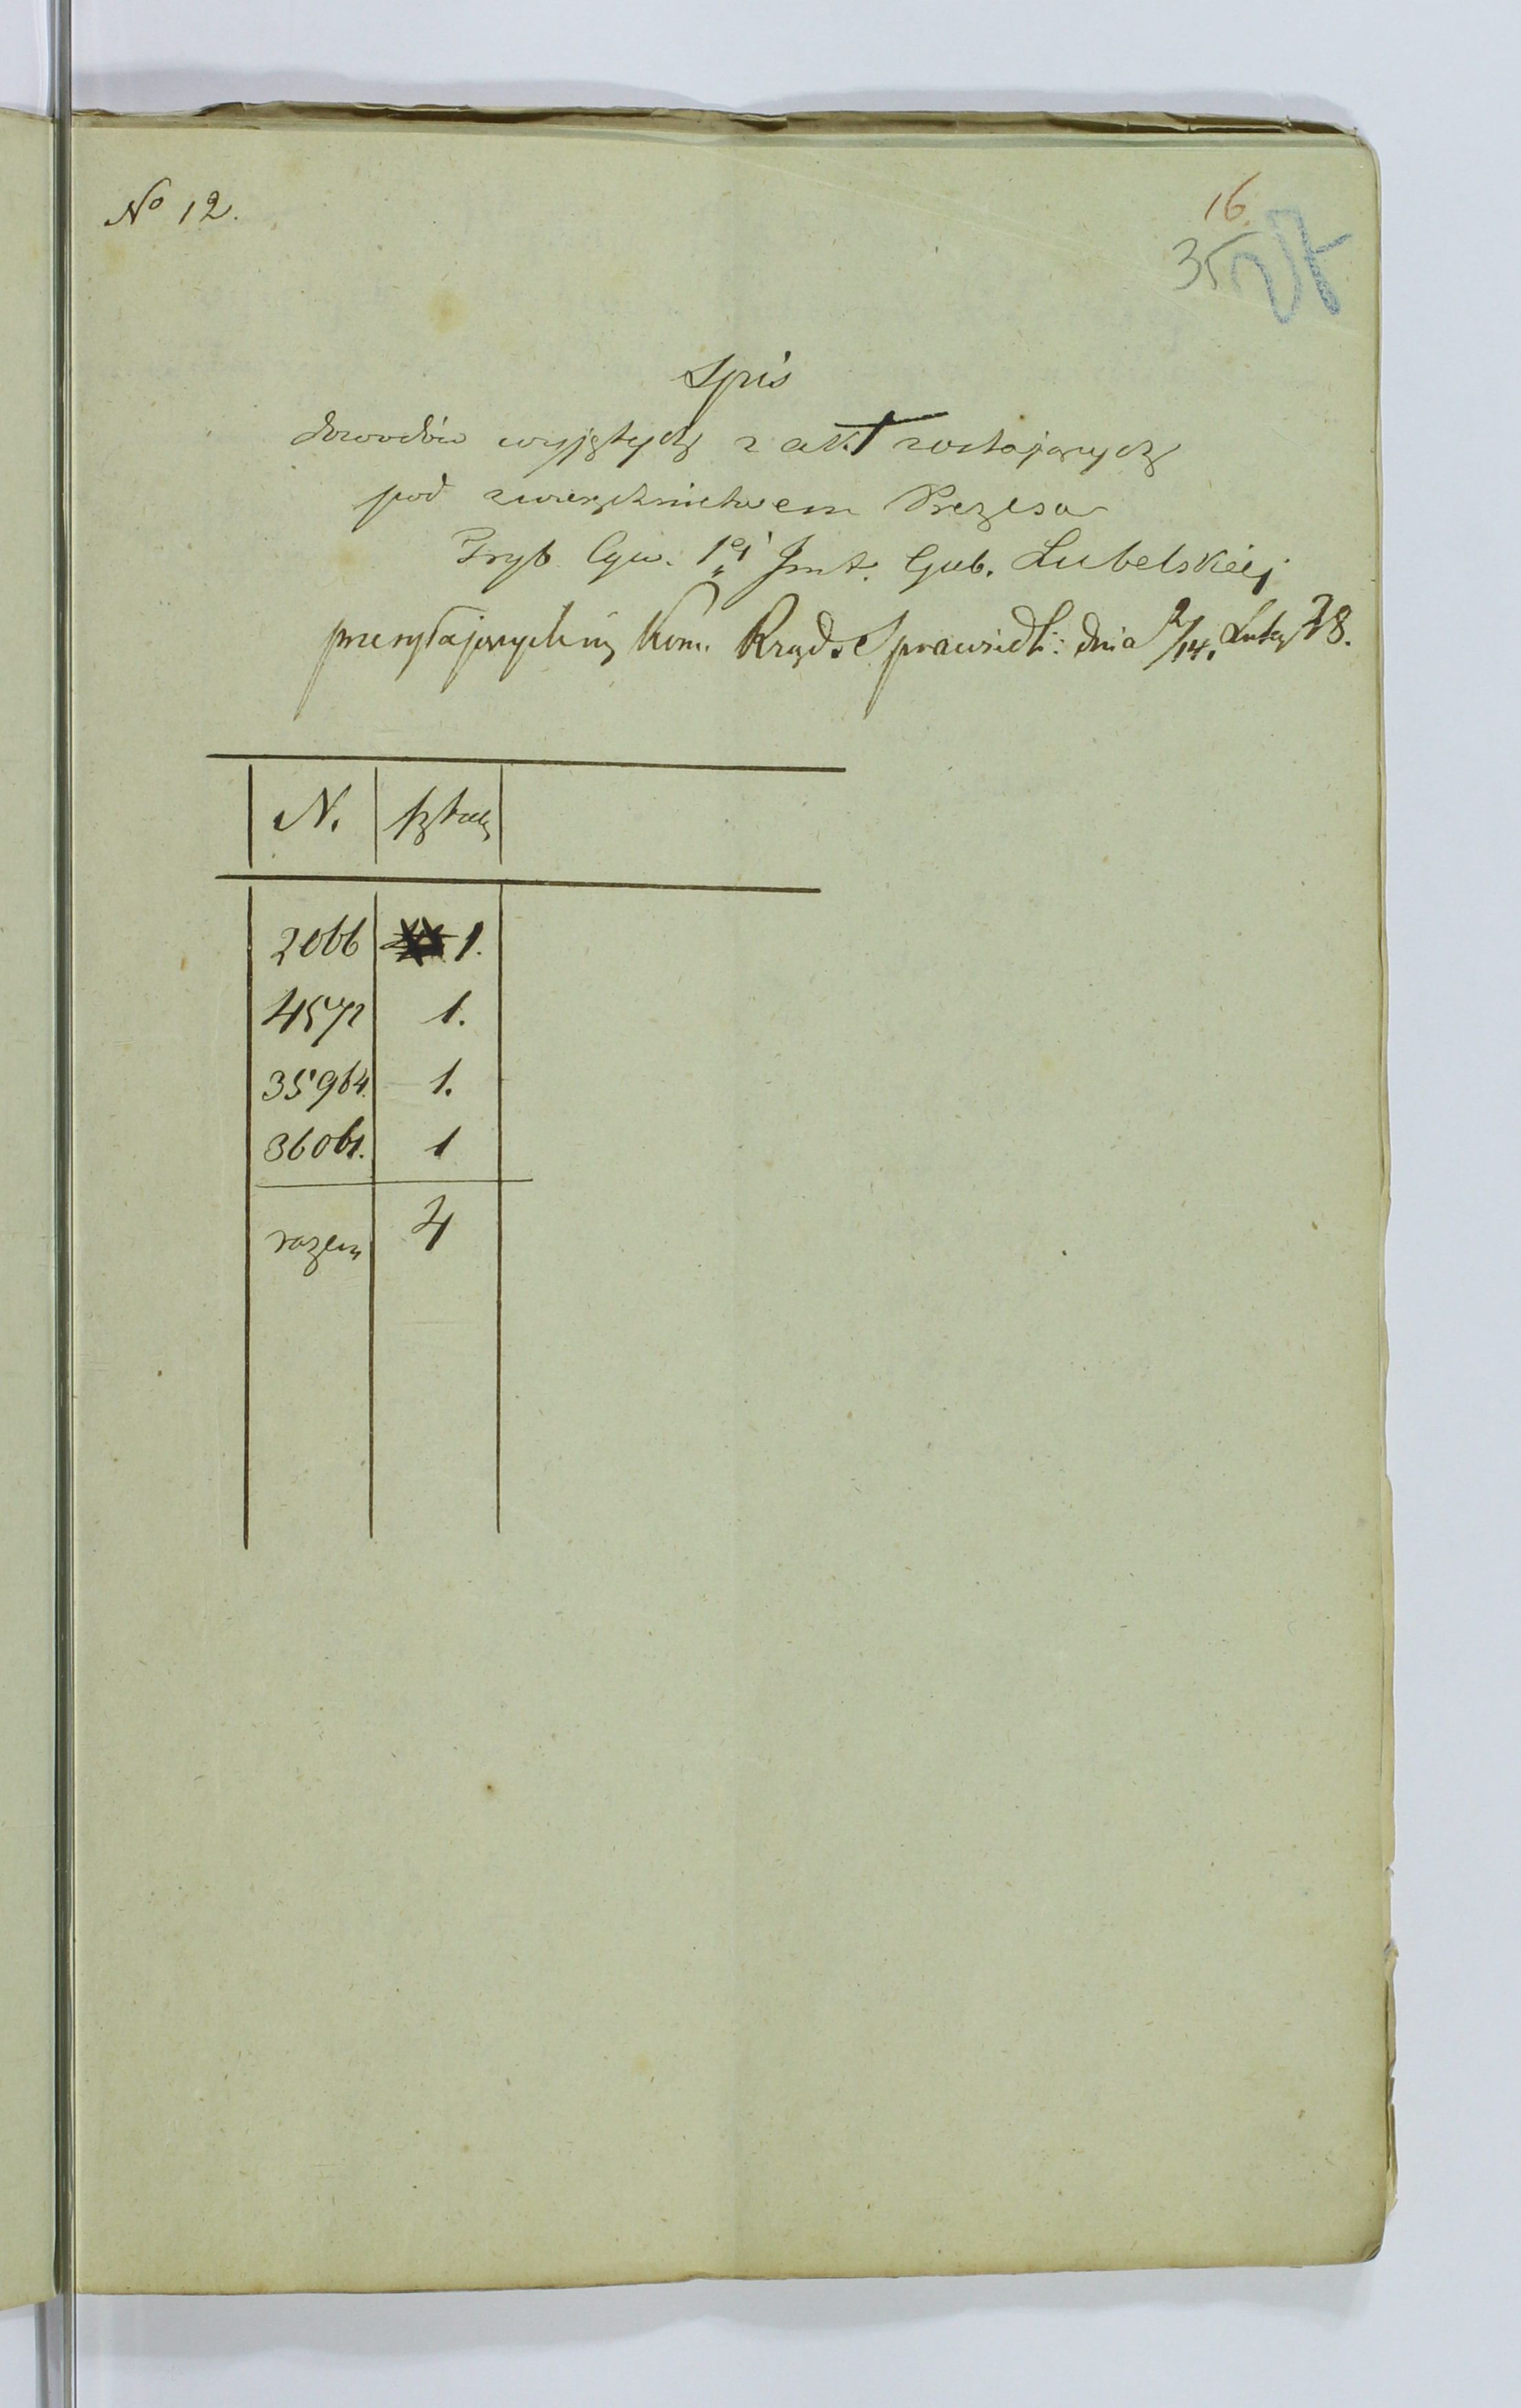 No 12.
16.
35
Spis
dowodów wyjętych z akt zostających
pod zwierzchnictwem Prezesa
Tryb. Cyw. 1ej Inst. Gub. Lubelskiej
przesyłających się Kom. Rząd. Sprawiedl: dnia 2/14. Luteg 38.
N. sztuk
2066 1.
4572 1.
35964. 1.
36061. 1
razem 4